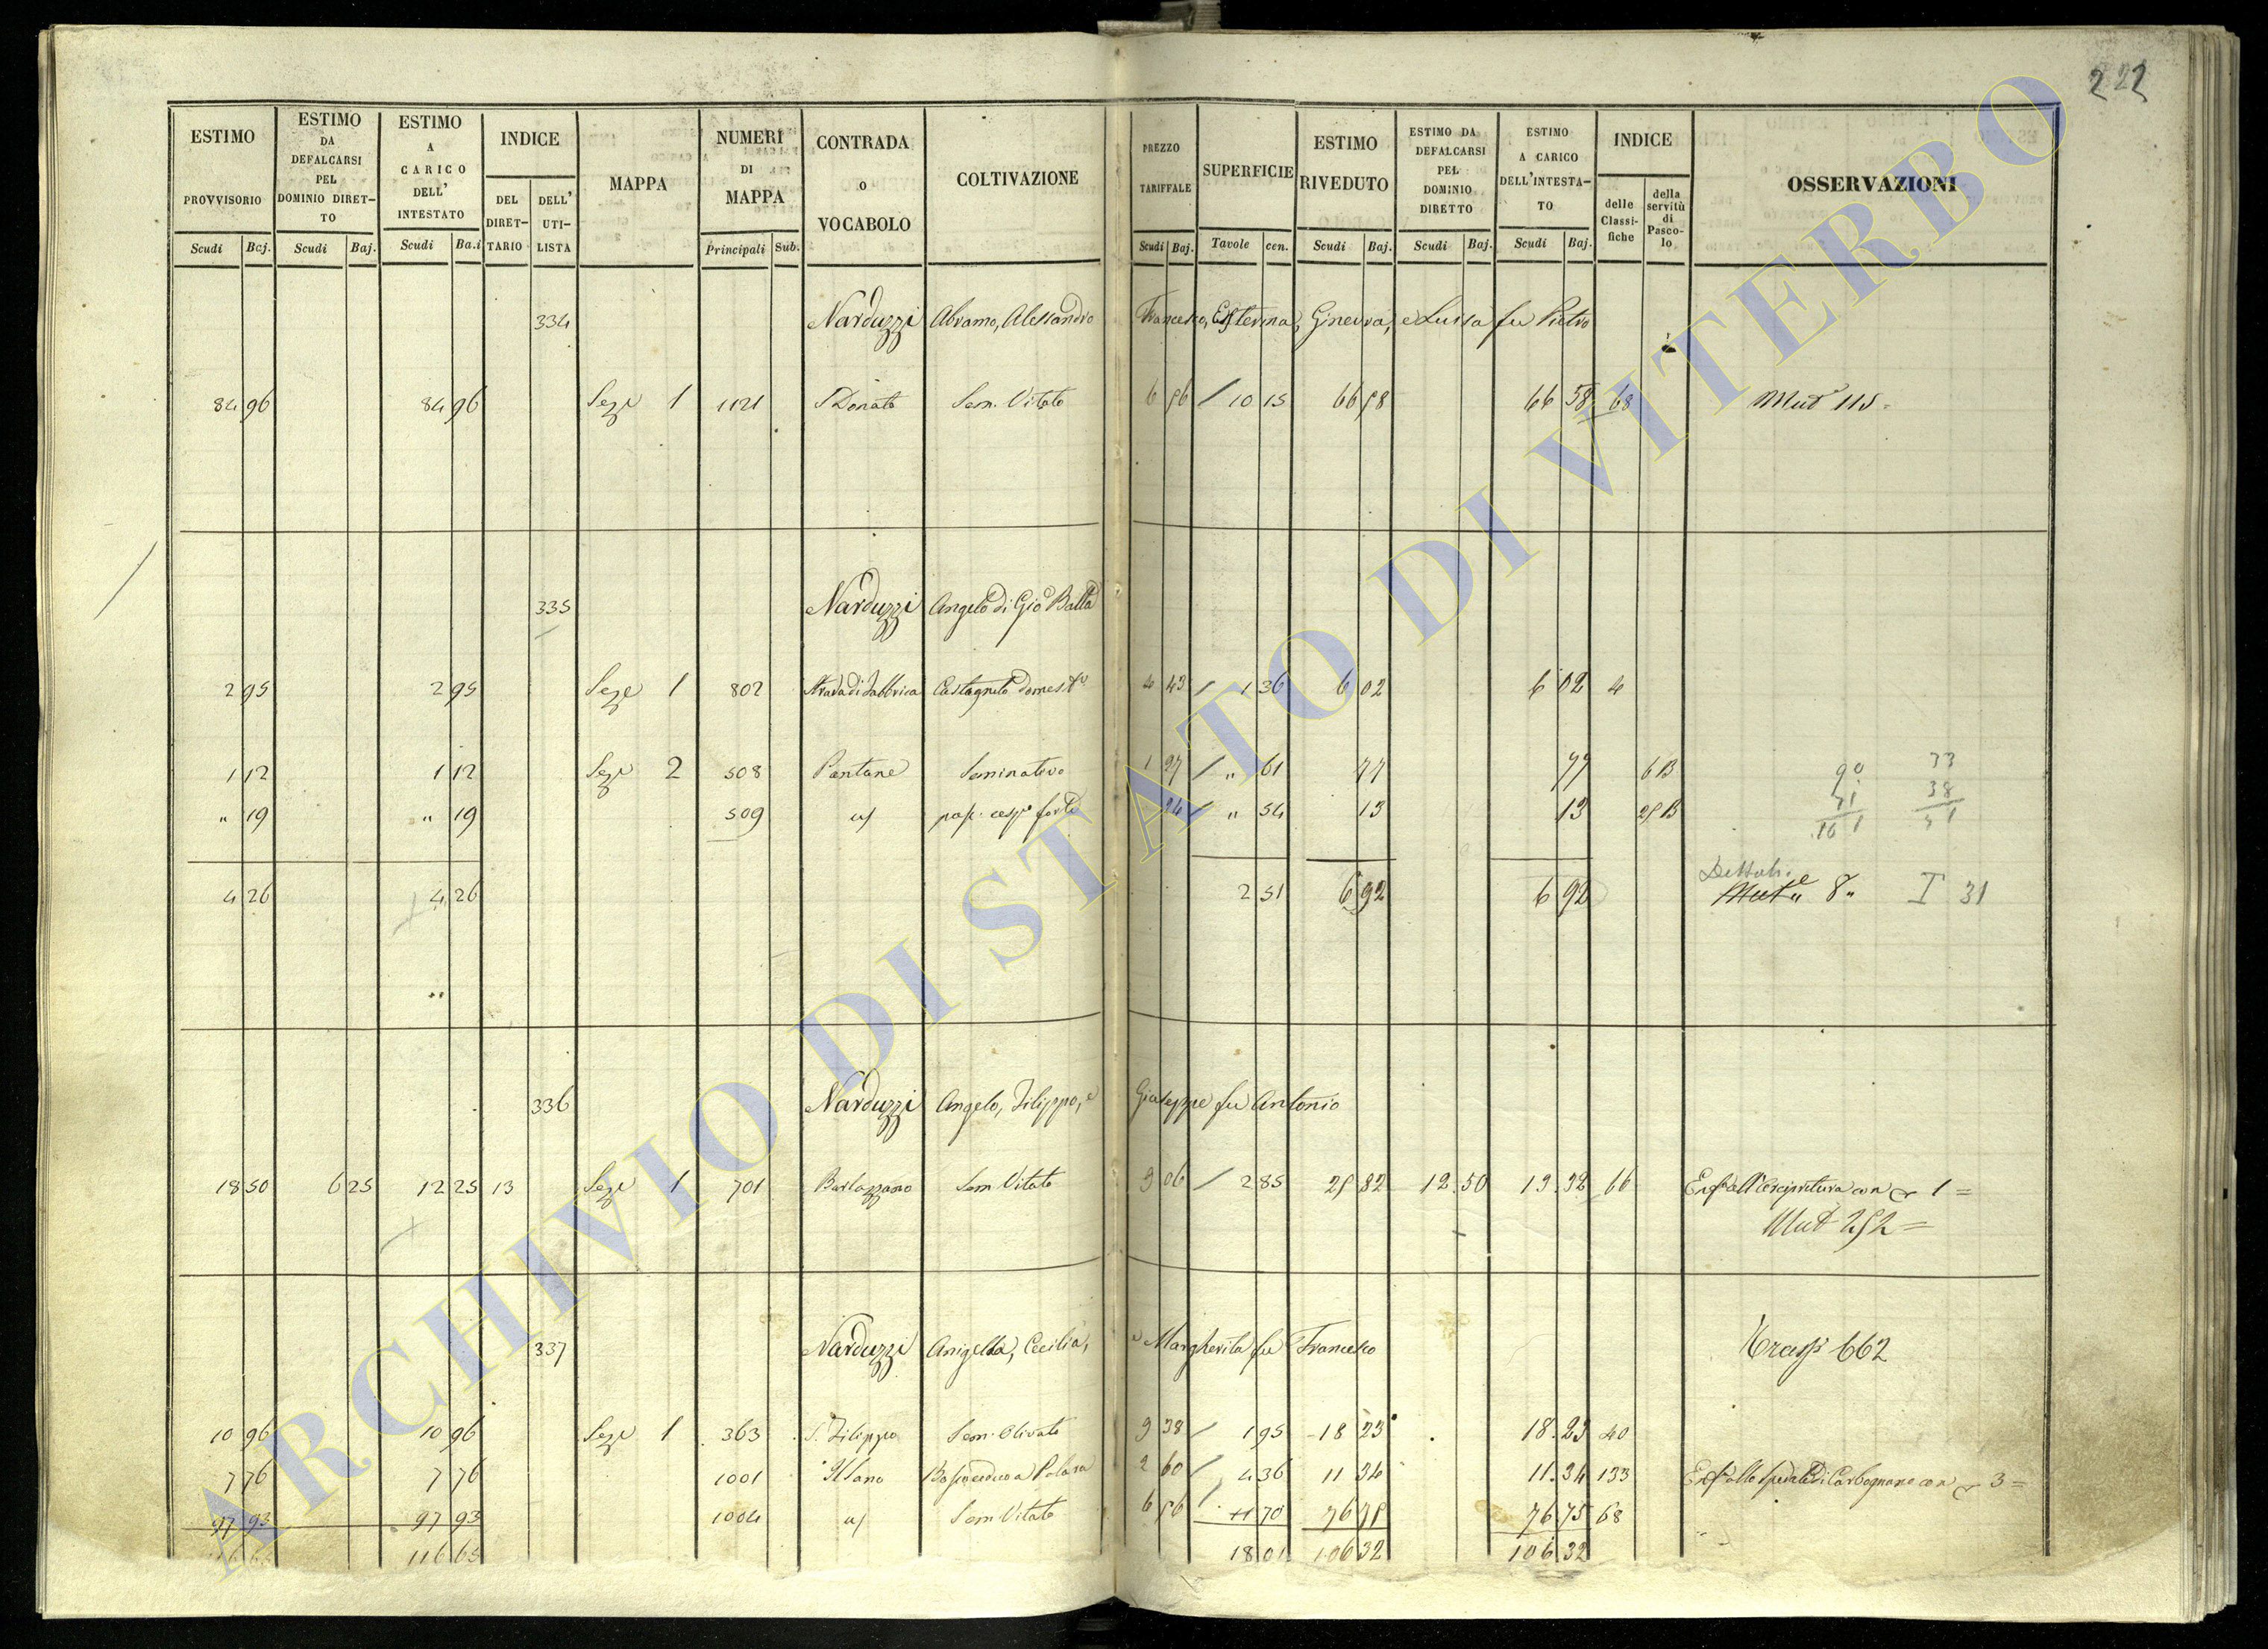 222
ESTIMO PROVVISORIO Scudi Baj.
ESTIMO DA DEFALCARSI PEL DOMINIO DIRET-TO Scudi Baj.
ESTIMO A CARICO DELL' INTESTATO Scudi Ba.i
INDICE DEL DIRET-TARIO DELL' UTI-LISTA
MAPPA
NUMERI DI MAPPA Principali Sub.
CONTRADA O VOCABOLO
COLTIVAZIONE
PREZZO TARIFFALE Scudi Baj.
SUPERFICIE Tavole cen.
ESTIMO RIVEDUTO Scudi Baj.
ESTIMO DA DEFALCARSI PEL DOMINIO DIRETTO Scudi Baj.
ESTIMO A CARICO DELL'INTESTA-TO Scudi Baj.
INDICE delle Classi-fiche della servitù di Pasco-lo
OSSERVAZIONI
334 Narduzzi Abramo, Alessandro Francesco, Esterina, Ginevra, e Luisa fu Pietro
84 96 84 96 Seze 1 1121 S Donato Sem. Vitato 6 56 / 10 15 66 58 66 58 68 Mut 115
335 Narduzzi Angelo di Gio Batta
2 95 2 95 Seze 1 802 Strada di Fabbrica Castagneto domesto 4 43 / 1 36 6 02 6 02 4
1 12 1 12 Seze 2 508 Pantane Seminativo 1 27 / " 61 77 77 6 B
" 19 " 19 509 24 / " 54 13 13 25 B
4 26 4 26 2 51 6 92 6 92 Mut " 8 " I 31
336 Narduzzi Angelo, Filippo, e Giuseppe fu Antonio
18 50 6 25 12 25 13 Seze 1 701 Barlozzano Sem Vitato 9 06 / 2 85 25 82 12.50 13.32 66 1 =
Mut 252 =
337 Narduzzi Angella, Cecilia, e Margherita fu Francesco 662
10 96 10 96 Seze 1 363 S. Filippo Sem. Olivato 9 38 / 1 95 18 23 18.23 40
7 76 7 76 1001 2 60 / 4 36 11 34 11.34 133 di Carbognano con 3 =
97 93 97 93 1004 Sem Vitato 6 56 / 11 70 76 75 76.75 68
116 65 116 65 18 01 106 32 106.32
ARCHIVIO DI STATO DI VITERBO